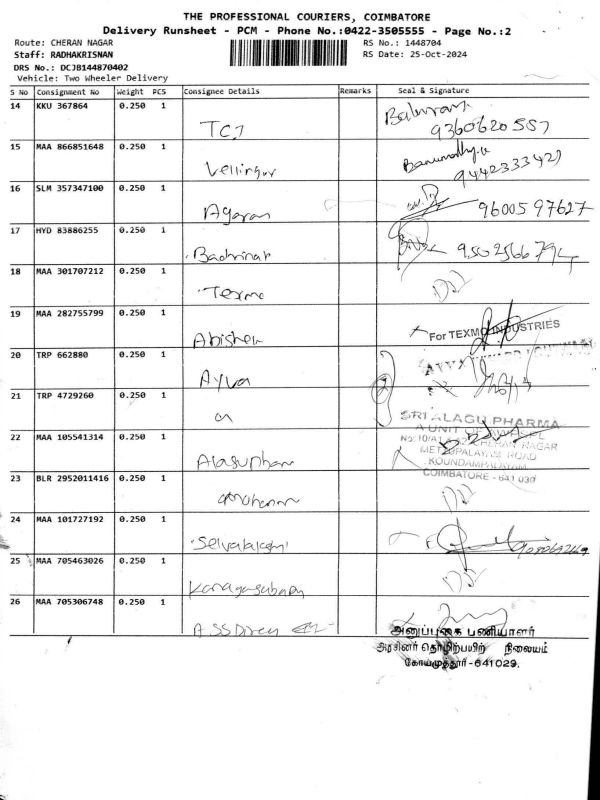 THE PROFESSIONAL COURIERS, COIMBATORE
Delivery Runsheet - PCM - Phone No.:0422-3505555 - Page No.:2
Route: CHERAN NAGAR RS No.: 1448704
Staff: RADHAKRISNAN RS Date: 25-Oct-2024
DRS No.: DCJB144870402
Vehicle: Two Wheeler Delivery
S No Consignment No Weight PCS Consignee Details Remarks Seal & Signature
14 KKU 367864 0.250 1
TCI 9360620557
15 MAA 866851648 0.250 1
Vellingur 9442333427
16 SLM 357347100 0.250 1
Agaran 9600597627
17 HYD 83886255 0.250 1
Badrinat
18 MAA 301707212 0.250 1
Texmo
19 MAA 282755799 0.250 1
Abishek For TEXMO INDUSTRIES
20 TRP 662880 0.250 1
Ayya
21 TRP 4729260 0.250 1
SRI ALAGU PHARMA
A UNIT OF
22 MAA 105541314 0.250 1
CHERAN NAGAR
METTUPALAYAM ROAD
KOUNDAMPALAYAM
COIMBATORE - 641 030
23 BLR 2952011416 0.250 1
24 MAA 101727192 0.250 1
Selvalakshmi
25 MAA 705463026 0.250 1
26 MAA 705306748 0.250 1
அனுப்புகை பணியாளர்
அரசினர் தொழிற்பயிற் நிலையம்
கோயமுத்தூர்-641029.